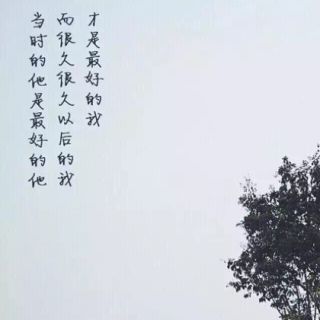 当时的他是最好的他
而很久很久以后的我
才是最好的我